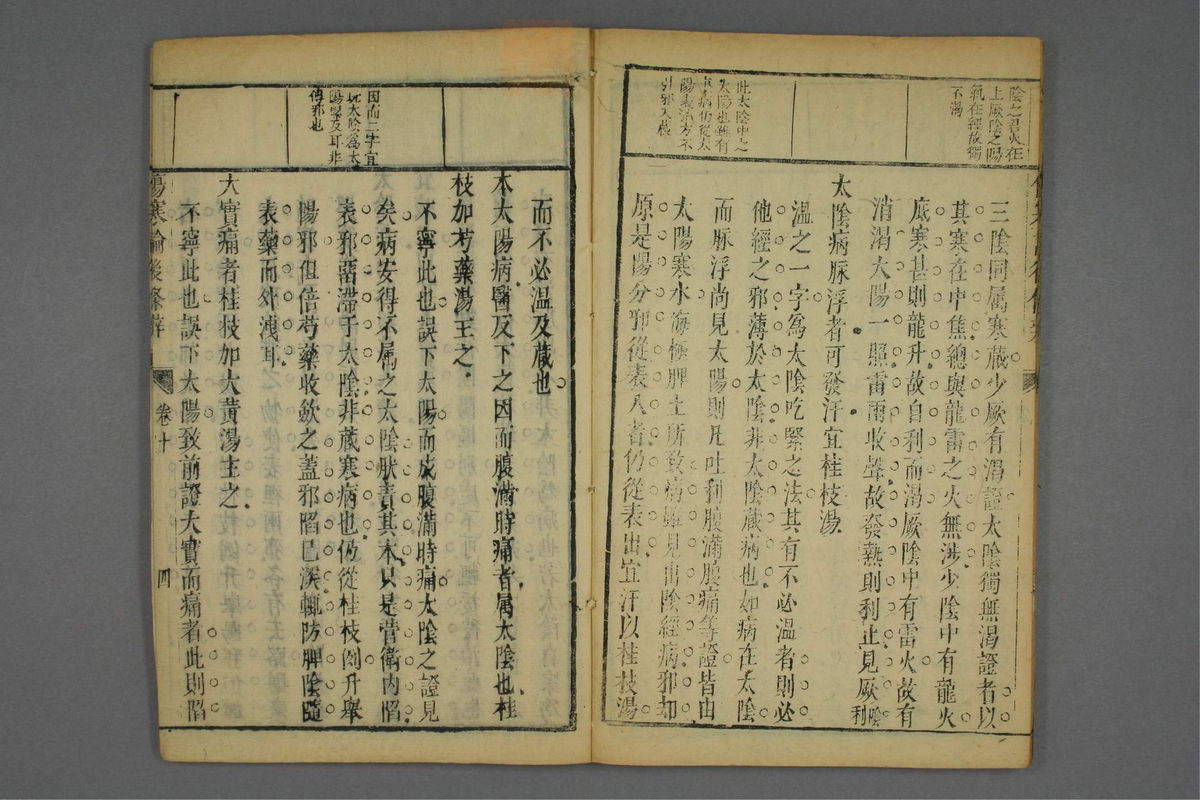 陰之君火在
上厥陰之陽
氣在經故獨
不渴
此太陰中之
太陽也雖有
裏病仍從太
陽表治方不
引邪入藏
三陰同属寒藏少厥有渴證太陰獨無渴證者以
其寒在中焦總與龍雷之火無涉少陰中有龍火
底寒甚則龍升故自利而渴厥陰中有雷火故有
消渴太陽一照雷雨收聲故發熱則利止見厥陰利
太陰病脉浮者可發汗宜桂枝湯
溫之一字為太陰吃緊之法其有不必溫者則必
他經之邪薄於太陰非太陰藏病也如病在太陰
而脉浮尚見太陽則凡吐利腹滿腹痛等證皆由
太陽寒水侮極脾土所致病雖見出陰經病邪却
原是陽分邪從表入者仍從表出宜汗以桂枝湯
因而二字宜
玩太陰為太
陽壘及耳非
傳邪也
而不必溫及藏也
本太陽病醫反下之因而腹滿時痛者属太陰也桂
枝加芍藥湯主之
不寧此也誤下太陽而成腹滿時痛太陰之證見
矣病安得不属之太陰肰責其本只是營衛內陷
表邪畱滯于太陰非藏寒病也仍從桂枝例升舉
陽邪但倍芍藥收歛之蓋邪陷已深輙防脾陰隨
表藥而外洩耳
大實痛者桂枝加大黃湯主之
不寧此也誤下太陽致前證大實而痛者此則陷
傷寒論後條辨
卷十
四